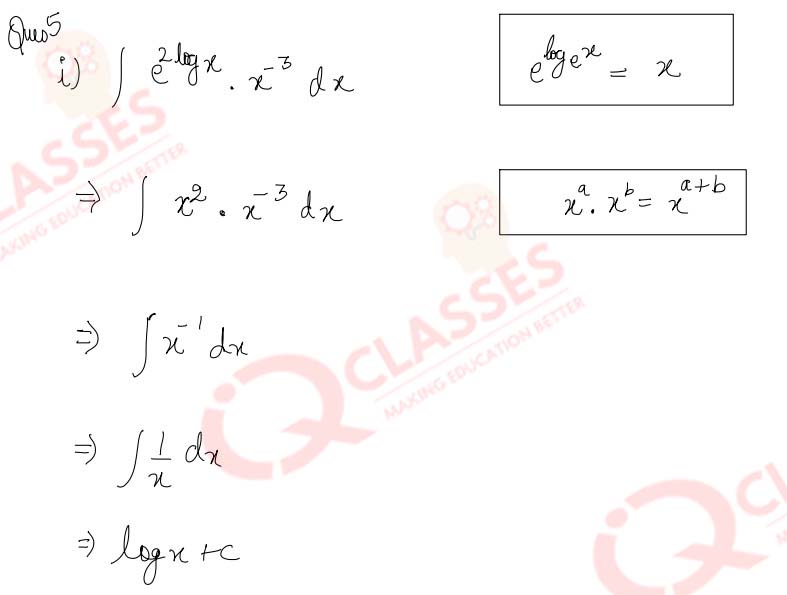 Ques 5
i) ∫ e^{2 log x} . x^{-3} dx
e^{log_e x} = x
⇒ ∫ x^2 . x^{-3} dx
x^a . x^b = x^{a+b}
⇒ ∫ x^{-1} dx
⇒ ∫ 1/x dx
⇒ log x + c
CLASSES
MAKING EDUCATION BETTER
iQ CLASSES
MAKING EDUCATION BETTER
iQ CL